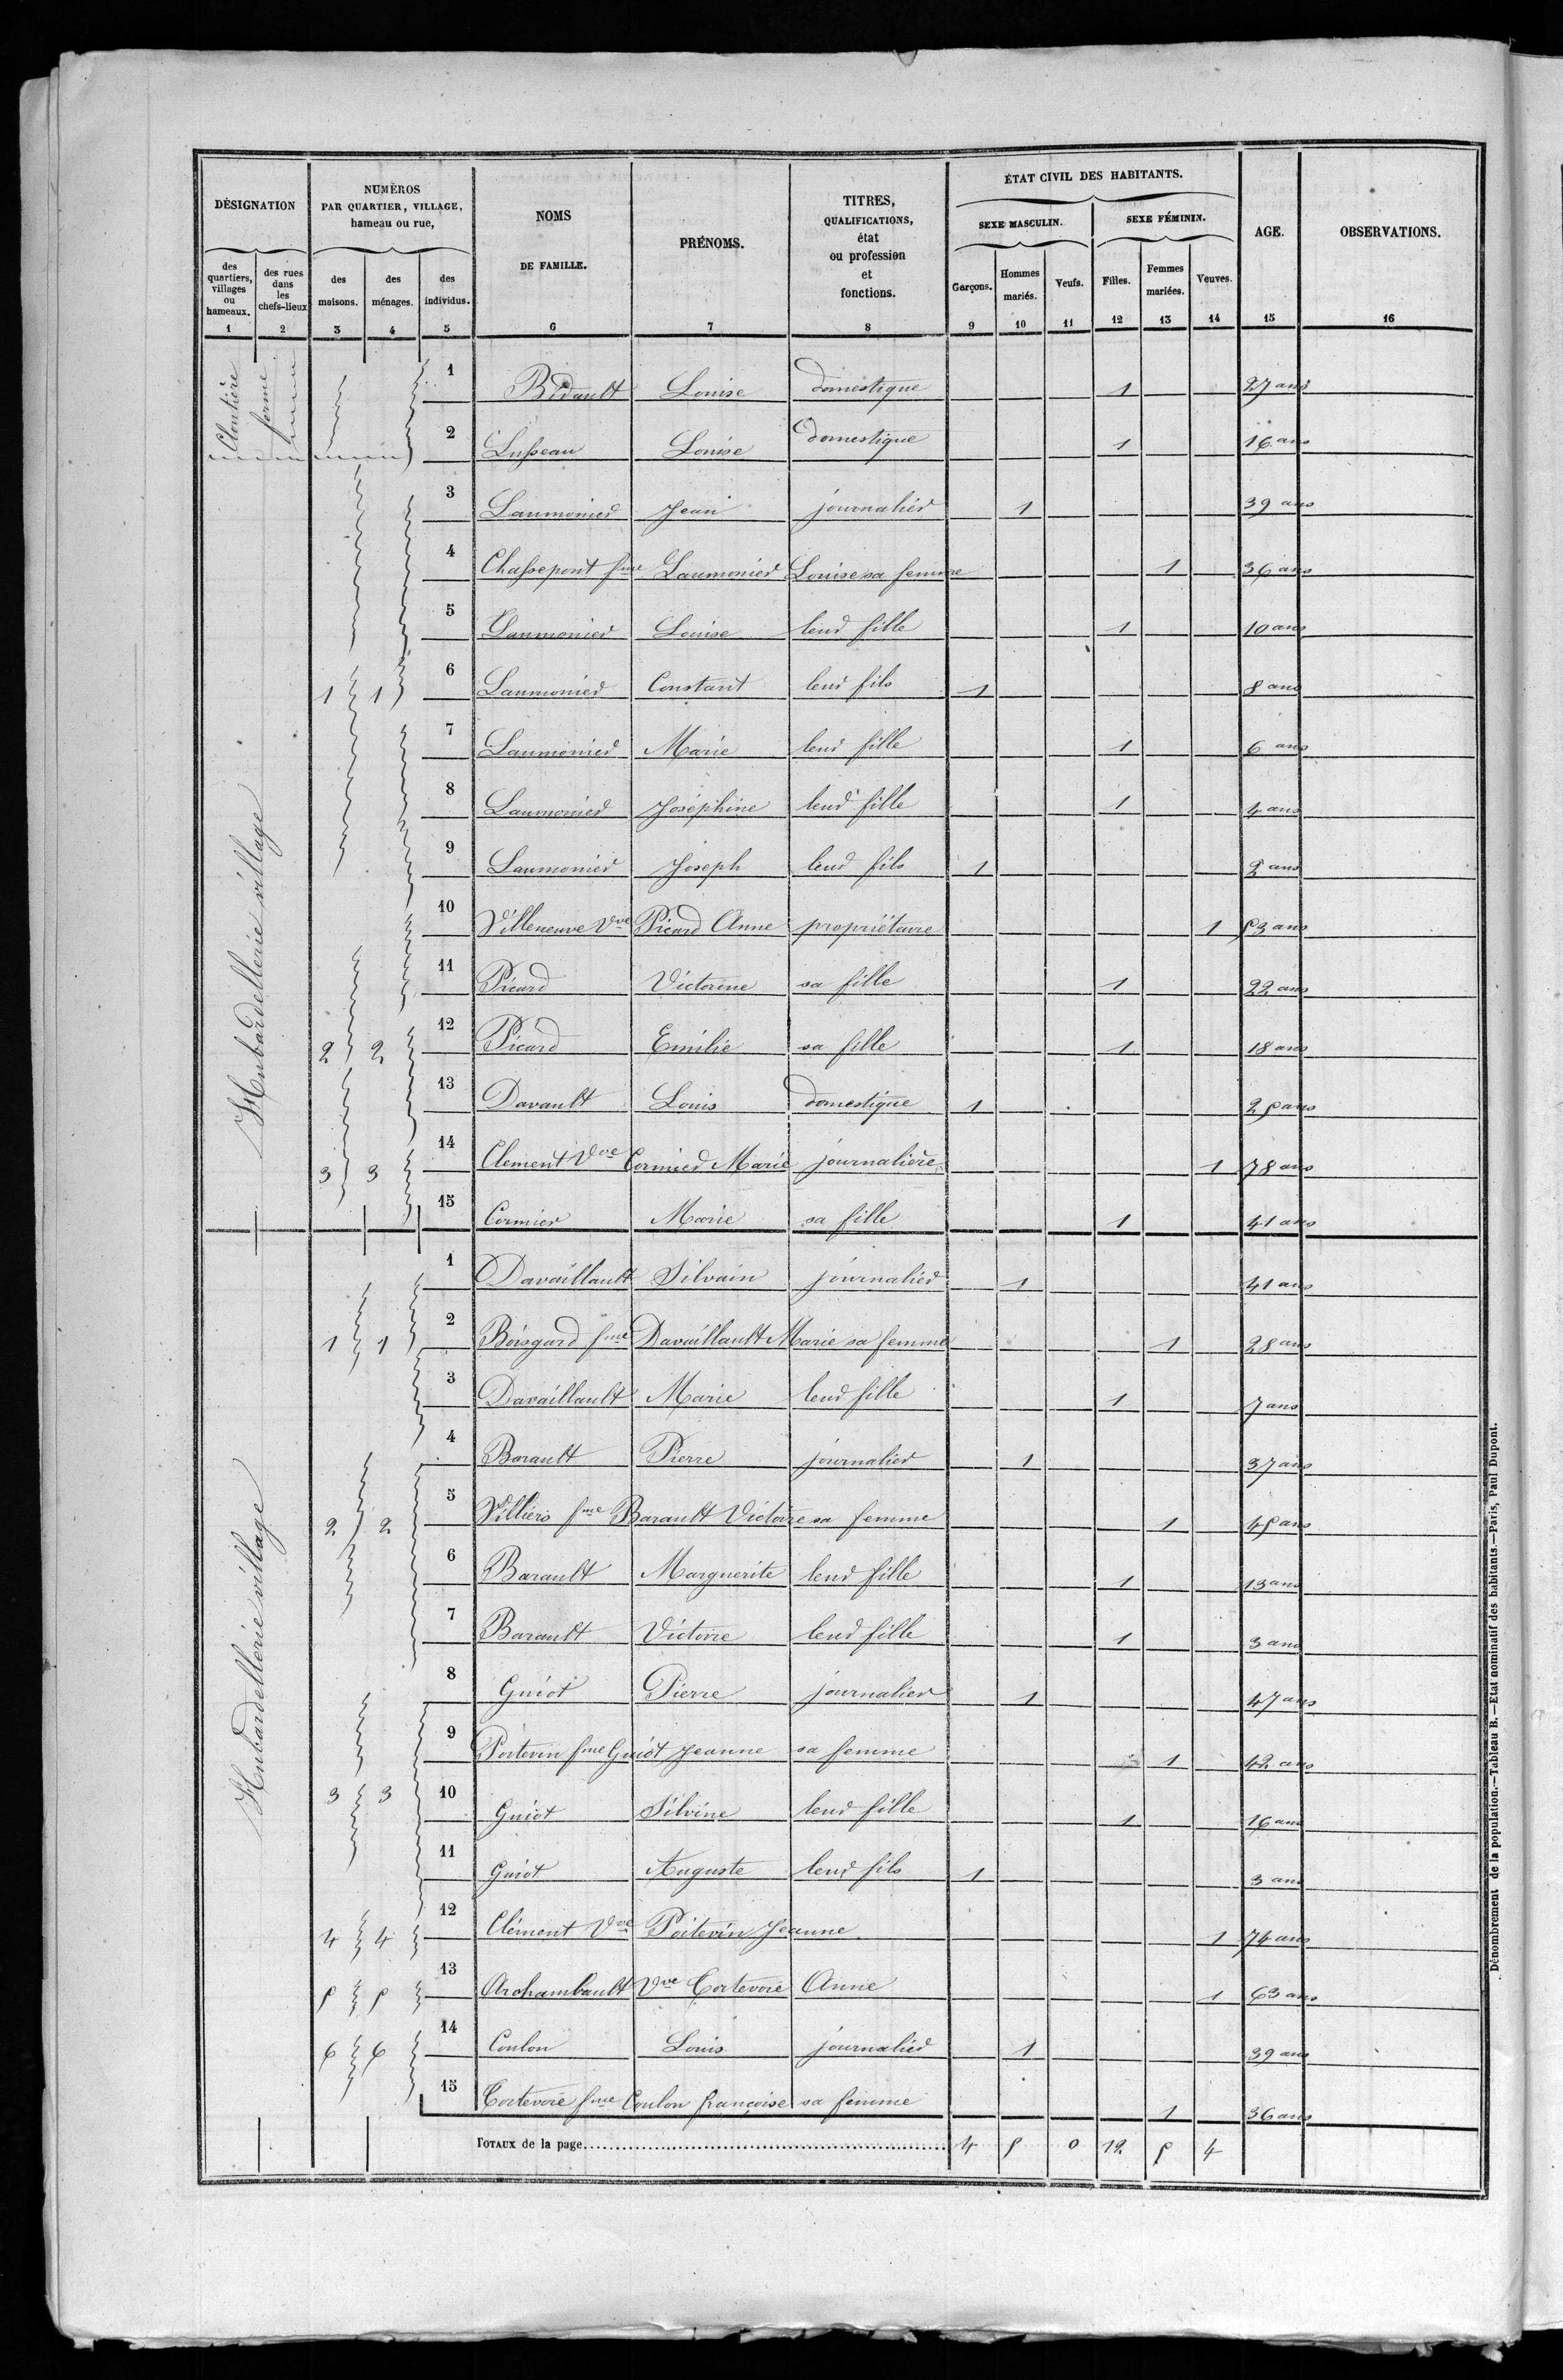 DÉSIGNATION
NUMÉROS
PAR QUARTIER, VILLAGE,
hameau ou rue,
NOMS
DE FAMILLE.
PRÉNOMS.
TITRES,
QUALIFICATIONS,
état
ou profession
et
fonctions.
ÉTAT CIVIL DES HABITANTS.
SEXE MASCULIN.
SEXE FÉMININ.
AGE.
OBSERVATIONS.
des quartiers, villages ou hameaux.
des rues dans les chefs-lieux
des maisons.
des ménages.
des individus.
Garçons.
Hommes mariés.
Veufs.
Filles.
Femmes mariées.
Veuves.
1 2 3 4 5 6 7 8 9 10 11 12 13 14 15 16
ferme
1 Bidault Louise domestique 1 27 ans
2 Lusseau Louise domestique 1 16 ans
Hubardellerie village
3 Laumonier Jean journalier 1 39 ans
4 Chassepont fme Laumonier Louise sa femme 1 36 ans
5 Laumonier Louise leur fille 1 10 ans
1 1 6 Laumonier Constant leur fils 1 8 ans
7 Laumonier Marie leur fille 1 6 ans
8 Laumonier Joséphine leur fille 1 4 ans
9 Laumonier Joseph leur fils 1 2 ans
10 Villeneuve Vve Picard Anne propriétaire 1 53 ans
11 Picard Victorine sa fille 1 22 ans
2 2 12 Picard Emilie sa fille 1 18 ans
13 Davault Louis domestique 1 25 ans
3 3 14 Clement Vve Cormier Marie journalière 1 78 ans
15 Cormier Marie sa fille 1 41 ans
Hubardellerie village
1 Davaillault Silvain journalier 1 41 ans
1 1 2 Boisgard fme Davaillault Marie sa femme 1 28 ans
3 Davaillault Marie leur fille 1 7 ans
4 Barault Pierre journalier 1 37 ans
2 2 5 Villiers fme Barault Victoire sa femme 1 45 ans
6 Barault Marguerite leur fille 1 13 ans
7 Barault Victoire leur fille 1 3 ans
8 Guiot Pierre journalier 1 47 ans
9 Poitevin fme Guiot Jeanne sa femme 1 42 ans
3 3 10 Guiot Silvine leur fille 1 16 ans
11 Guiot Auguste leur fils 1 3 ans
4 4 12 Clément Vve Poitevin Jeanne 1 74 ans
5 5 13 Archambault Vve Tortevoie Anne 1 63 ans
6 6 14 Coulon Louis journalier 1 39 ans
15 Tortevoie fme Coulon françoise sa femme 1 36 ans
TOTAUX de la page 4 5 0 12 5 4
Dénombrement de la population.—Tableau B.—Etat nominatif des habitants.—Paris, Paul Dupont.